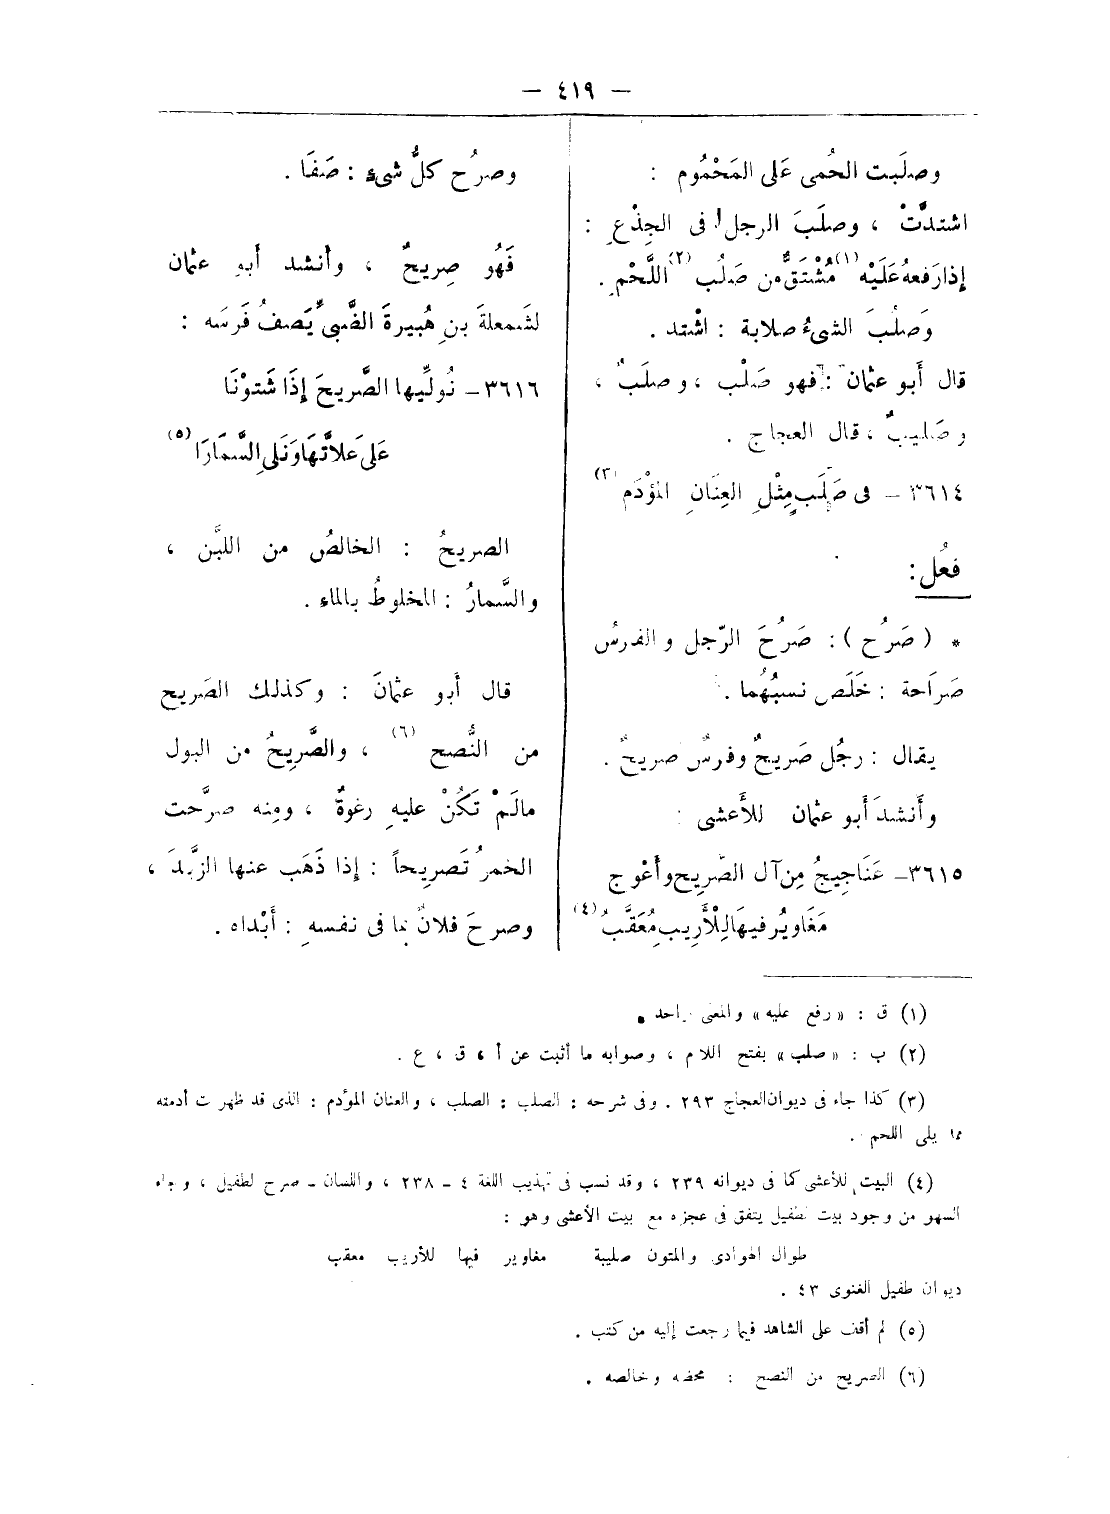 — ٤١٩ —
وصلَبت الحُمى عَلى المَحْمُوم :
اشتدَّتْ ، وصلَبَ الرجل فى الجِذْعِ :
إذا رفعهُ عَلَيْه (١) مُشْتَقٌّ من صَلُب (٢) اللَّحْمِ .
وَصلُبَ الشىءُ صلابة : اشْتد .
قال أَبو عثمان : فهو صَلْب ، وصلَبٌ ،
وصَليبٌ ، قال العجاج .
٣٦١٤ – فى صَلَبٍ مِثْلِ العِنَانِ المؤْدَم (٣)
فعُل :
* ( صَرُح ) : صَرُحَ الرّجل والفرسُ
صَرَاحة : خَلَص نسبُهُما .
يقال : رجُل صَريحٌ وفرسٌ صريحٌ .
وأَنشدَ أَبو عثمان للأَعشى :
٣٦١٥ – عَنَاجِيجُ مِن آل الصَّريحِ وأَعْوج
مَغَاويُر فيهَا لِلْأَريبِ مُعَقَّبُ (٤)
وصرُح كلُّ شىء : صَفَا .
فَهُو صِريحٌ ، وأنشد أَبو عثمان
لشَمعلةَ بنِ هُبيرةَ الضَّبىِّ يَصفُ فَرسَه :
٣٦١٦ – نُولِّيها الصَّريحَ إِذَا شَتوْنَا
عَلىَ عَلاَّتهَا وَنَلى السَّمارَا (٥)
الصريحُ : الخالصُ من اللبَّن ،
والسَّمارُ : المخلوطُ بالماء .
قال أَبو عثمانَ : وكذلك الصَريح
من النُّصح (٦) ، والصَّرِيحُ من البول
مالَمْ تَكُنْ عليهِ رغوةٌ ، ومِنه صرَّحت
الخمرُ تَصرِيحاً : إِذا ذَهَب عنها الزبَّدَ ،
وصرحَ فلانٌ بما فى نفسهِ : أَبْداه .
(١) ق : « رفع عليه » والمعنى واحد .
(٢) ب : « صلب » بفتح اللام ، وصوابه ما أثبت عن أ ، ق ، ع .
(٣) كذا جاء فى ديوان العجاج ٢٩٣ . وفى شرحه : الصلب : الصلب ، والعنان المؤدم : الذى قد ظهرت أدمته
مما يلى اللحم .
(٤) البيت للأعشى كما فى ديوانه ٢٣٩ ، وقد نسب فى تهذيب اللغة ٤ – ٢٣٨ ، واللسان – صرح لطفيل ، وجاء
السهو من وجود بيت لطفيل يتفق فى عجزه مع بيت الأعشى وهو :
طوال الهوادى والمتون صليبة مغاوير فيها للأريب معقب
ديوان طفيل الغنوى ٤٣ .
(٥) لم أقف على الشاهد فيما رجعت إليه من كتب .
(٦) الصريح من النصح : محضه وخالصه .